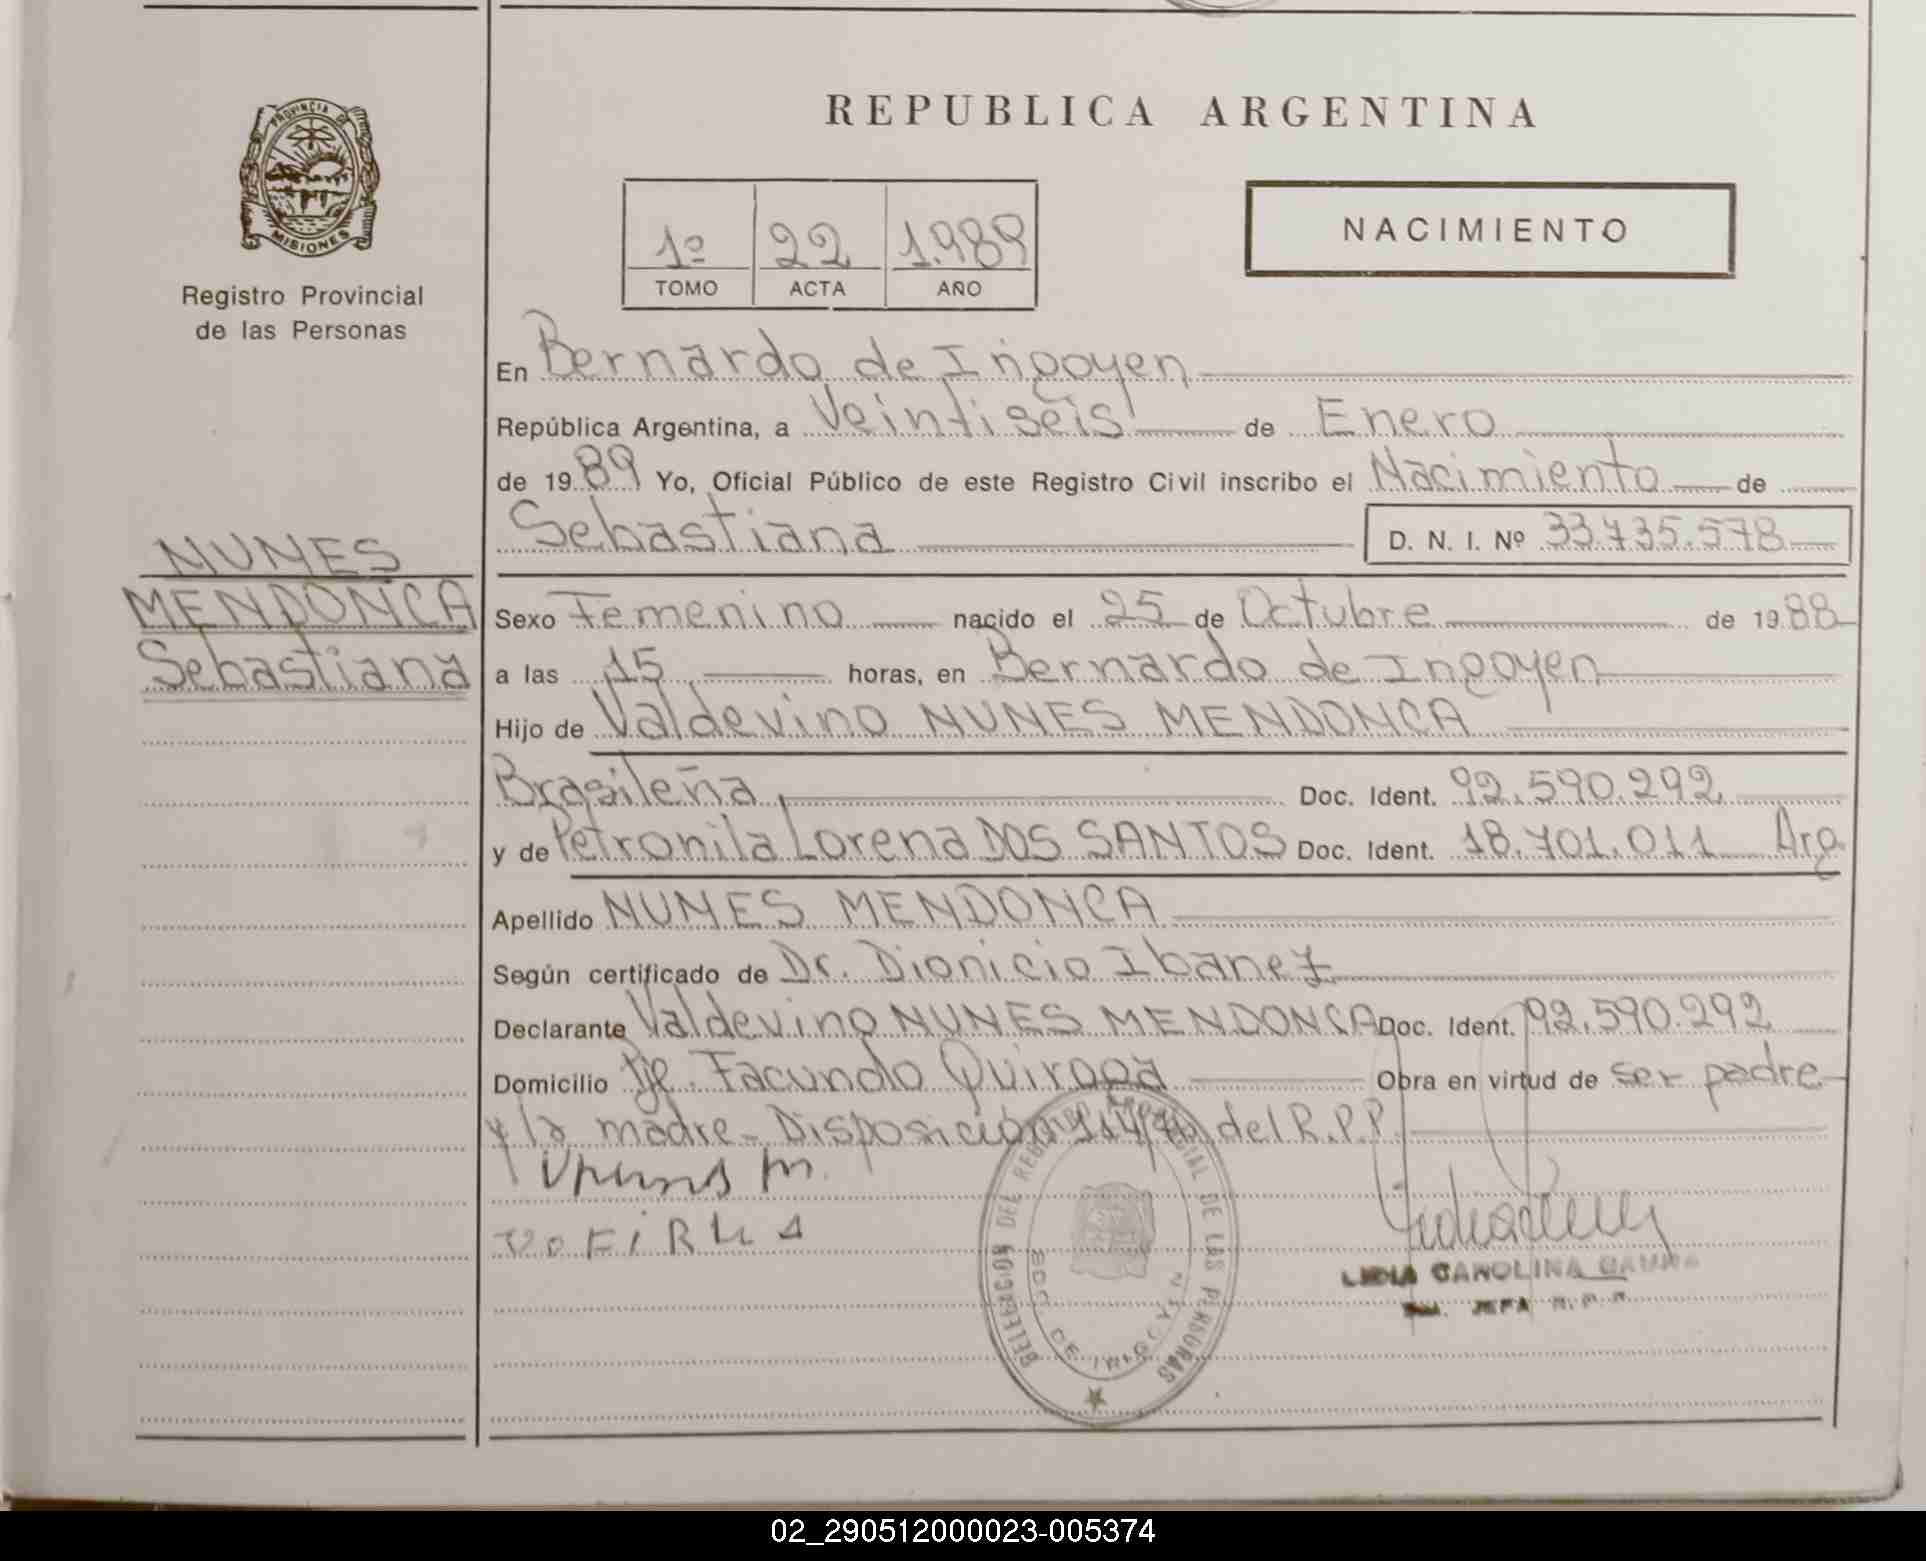 REPUBLICA ARGENTINA
PROVINCIA DE
MISIONES
Registro Provincial
de las Personas
1º 22 1.989
TOMO ACTA AÑO
NACIMIENTO
En Bernardo de Irigoyen
República Argentina, a Veintiseis de Enero
de 1989 Yo, Oficial Público de este Registro Civil inscribo el Nacimiento de
Sebastiana D. N. I. Nº 33.735.578
NUNES
MENDONCA
Sebastiana
Sexo Femenino nacido el 25 de Octubre de 1988
a las 15 horas, en Bernardo de Irigoyen
Hijo de Valdevino NUNES MENDONCA
Brasileña Doc. Ident. 92.590.292
y de Petronila Lorena DOS SANTOS Doc. Ident. 18.701.011 Arg
Apellido NUNES MENDONCA
Según certificado de Dr. Dionicio Ibanez
Declarante Valdevino NUNES MENDONCA Doc. Ident. 92.590.292
Domicilio Pje. Facundo Quiroga Obra en virtud de ser padre
y la madre - Disposición del R.P.P.
DEL REGISTRO PROVINCIAL DE LAS PERSONAS
BDO. DE IRIGOYEN
LIDIA CAROLINA
JEFA R.P.P.
02_290512000023-005374